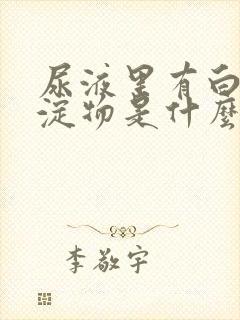 尿液里有白
淀物是什麼
李敬宇